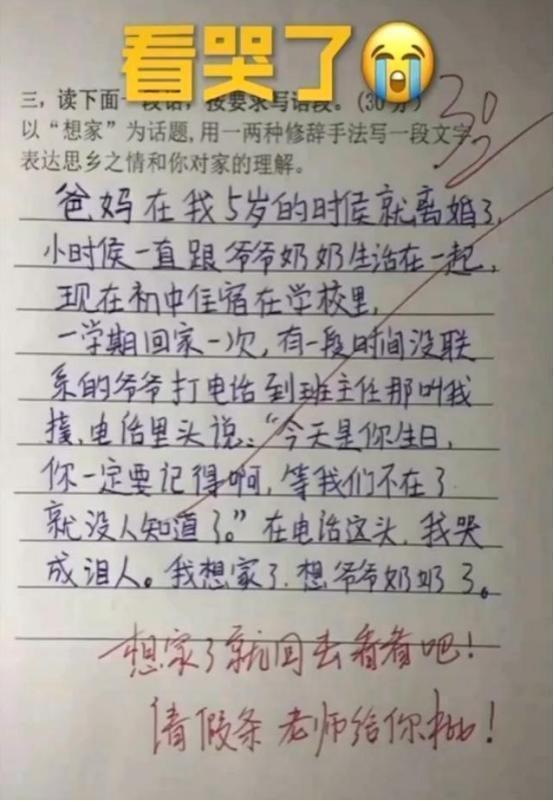 看哭了😭
三，读下面一段话，按要求写话段。(30分)
30
以“想家”为话题,用一两种修辞手法写一段文字
表达思乡之情和你对家的理解。
爸妈在我5岁的时侯就离婚了,
小时侯一直跟爷爷奶奶生活在一起,
现在初中住宿在学校里,
一学期回家一次,有一段时间没联
系的爷爷打电话到班主任那叫我
接,电话里头说:“今天是你生日,
你一定要记得啊,等我们不在了
就没人知道了。”在电话这头,我哭
成泪人。我想家了,想爷爷奶奶了。
想家了就回去看看吧!
请假条老师给你批!